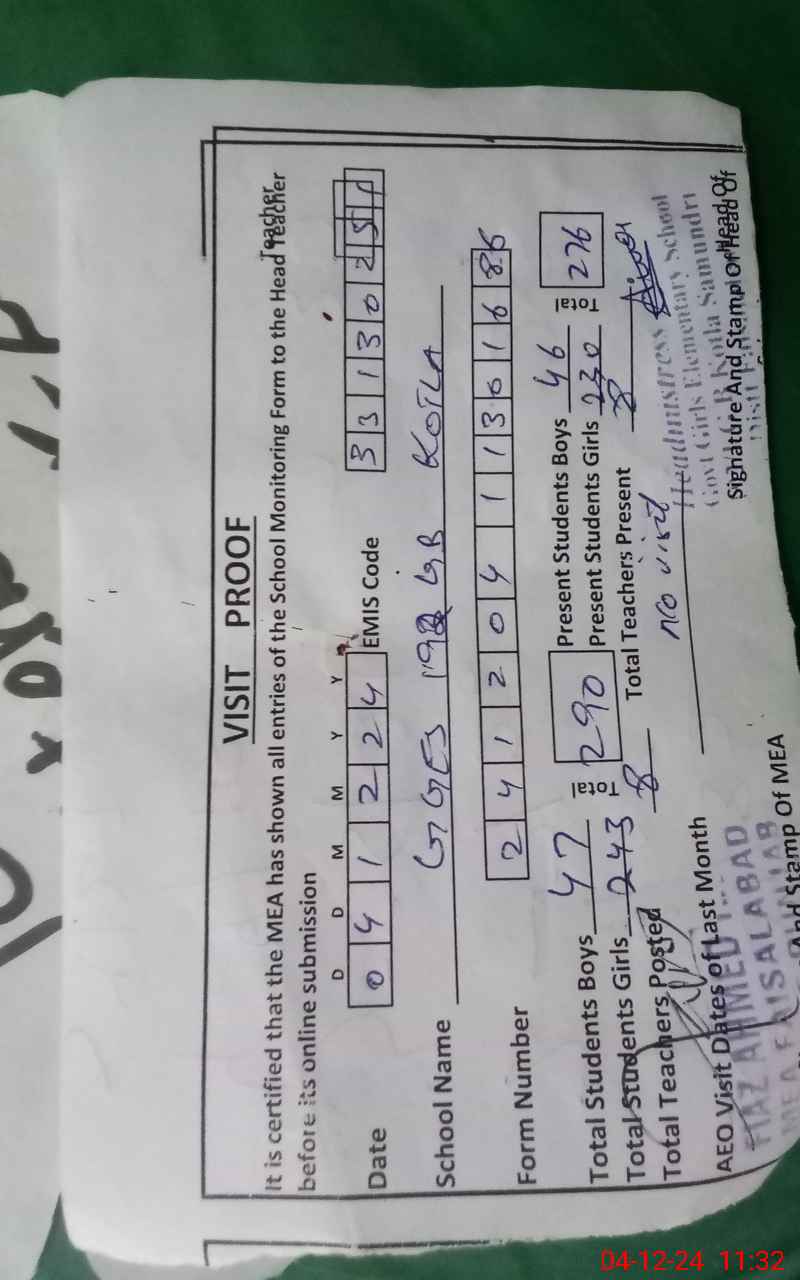 VISIT PROOF
It is certified that the MEA has shown all entries of the School Monitoring Form to the Head Teacher
before its online submission
D D M M Y Y
Date 0 4 1 2 2 4 EMIS Code 3 3 1 3 0 2 5 1
School Name GGES GB KOTLA
Form Number 2 4 1 2 0 4 1 1 3 0 1 6 8 6
Total Students Boys 47 Total 290 Present Students Boys 46 Total 276
Total Students Girls 243 Present Students Girls 230
Total Teachers Posted 8 Total Teachers Present 8
AEO Visit Dates of Last Month No visit
Headmistress
Govt Girls Elementary School
Kotla Samundri
Signature And Stamp Of Head Of
FIAZ AHMED
MEA FAISALABAD
And Stamp Of MEA
04-12-24 11:32